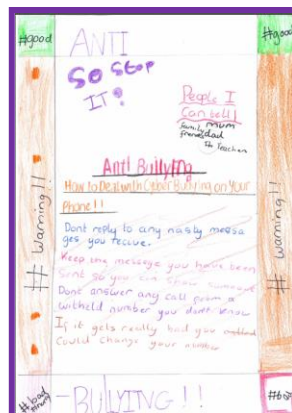 #good
ANTI
#good
So Stop
IT?
People I
Can tell!
family mum
friends dad
Teachers
Anti Bullying
How to Deal with Cyber Bullying on Your
Phone!!
Dont reply to any nasty messa
ges you recive.
Keep the message you have been
sent so you can show someone
Dont answer any call from a
witheld number you dont know
If it gets really bad you
could change your number
# Warning!!
# Warning!!
#bad
-BULLYING!!